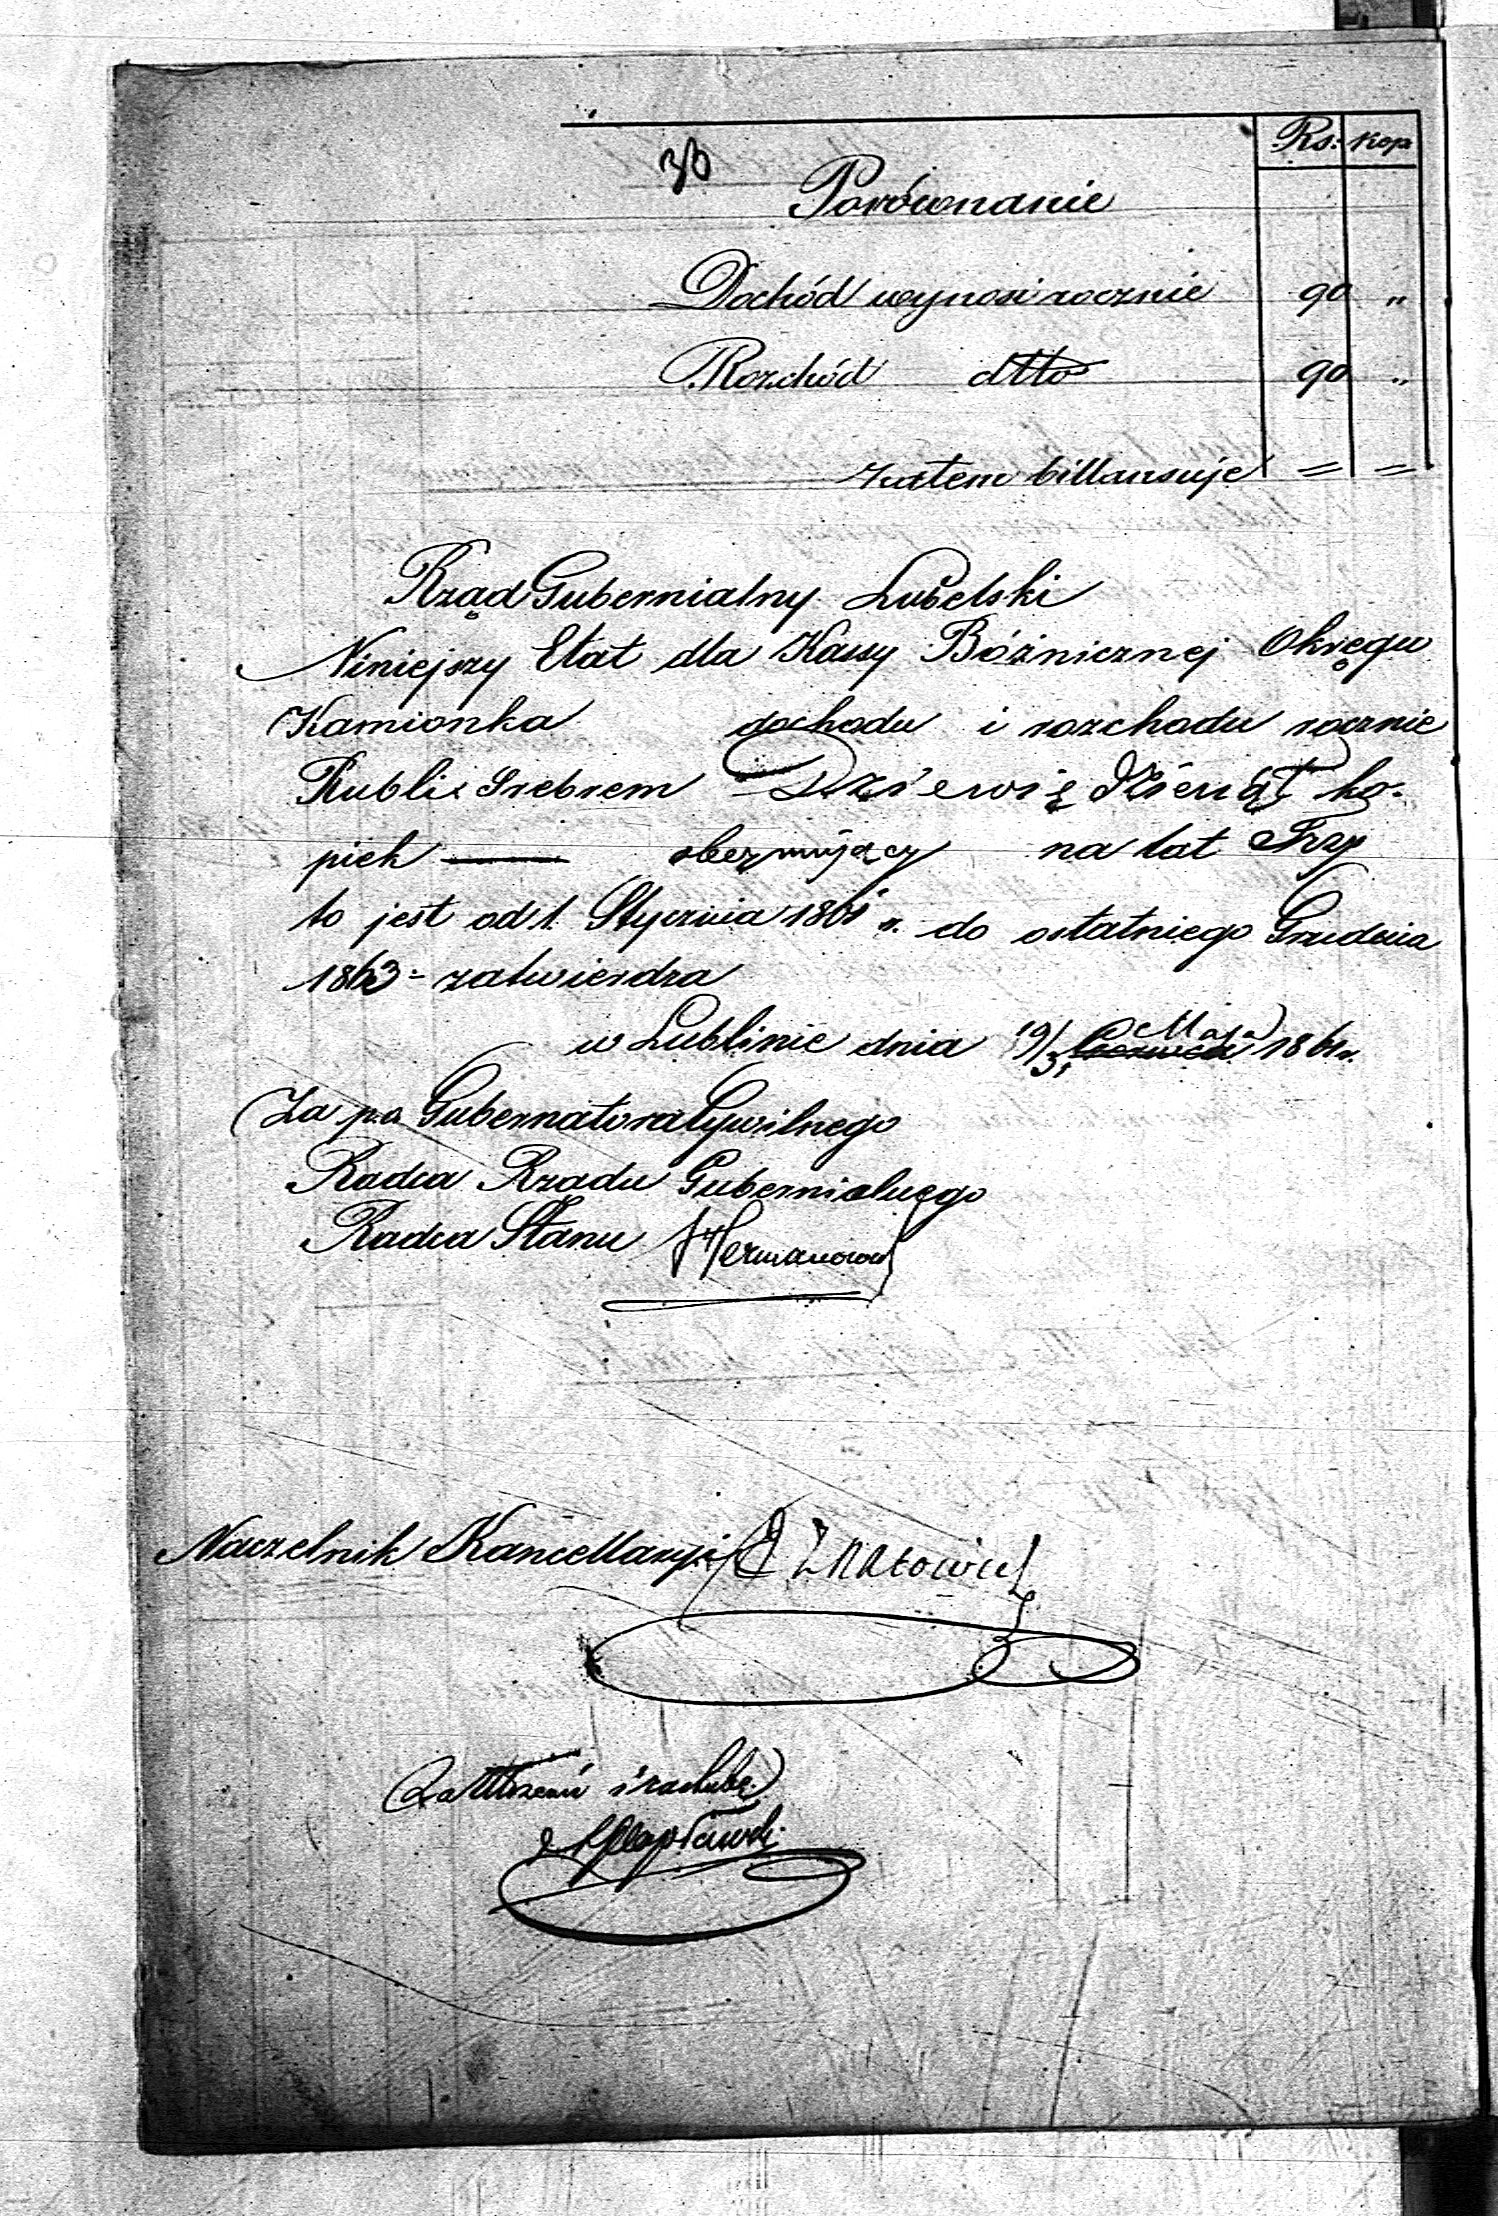 Rs: kop
36
Porównanie
Dochód wynosi rocznie 90 "
Rozchód dtto 90 "
zatem billansuje = =
Rząd Gubernialny Lubelski
Niniejszy Etat dla Kassy Bóżnicznej Okręgu
Kamionka dochodu i rozchodu rocznie
Rubli Srebrem Dziewiędziesiąt ko-
piek — obeymujący na lat Trzy
to jest od 1. Stycznia 1861 r. do ostatniego Grudnia
1863 - zatwierdza
w Lublinie dnia 19/31 Maja 1861 r.
Za p.o Gubernatora Cywilnego
Radca Rządu Gubernialnego
Radca Stanu Hermanowi
Naczelnik Kancellaryi